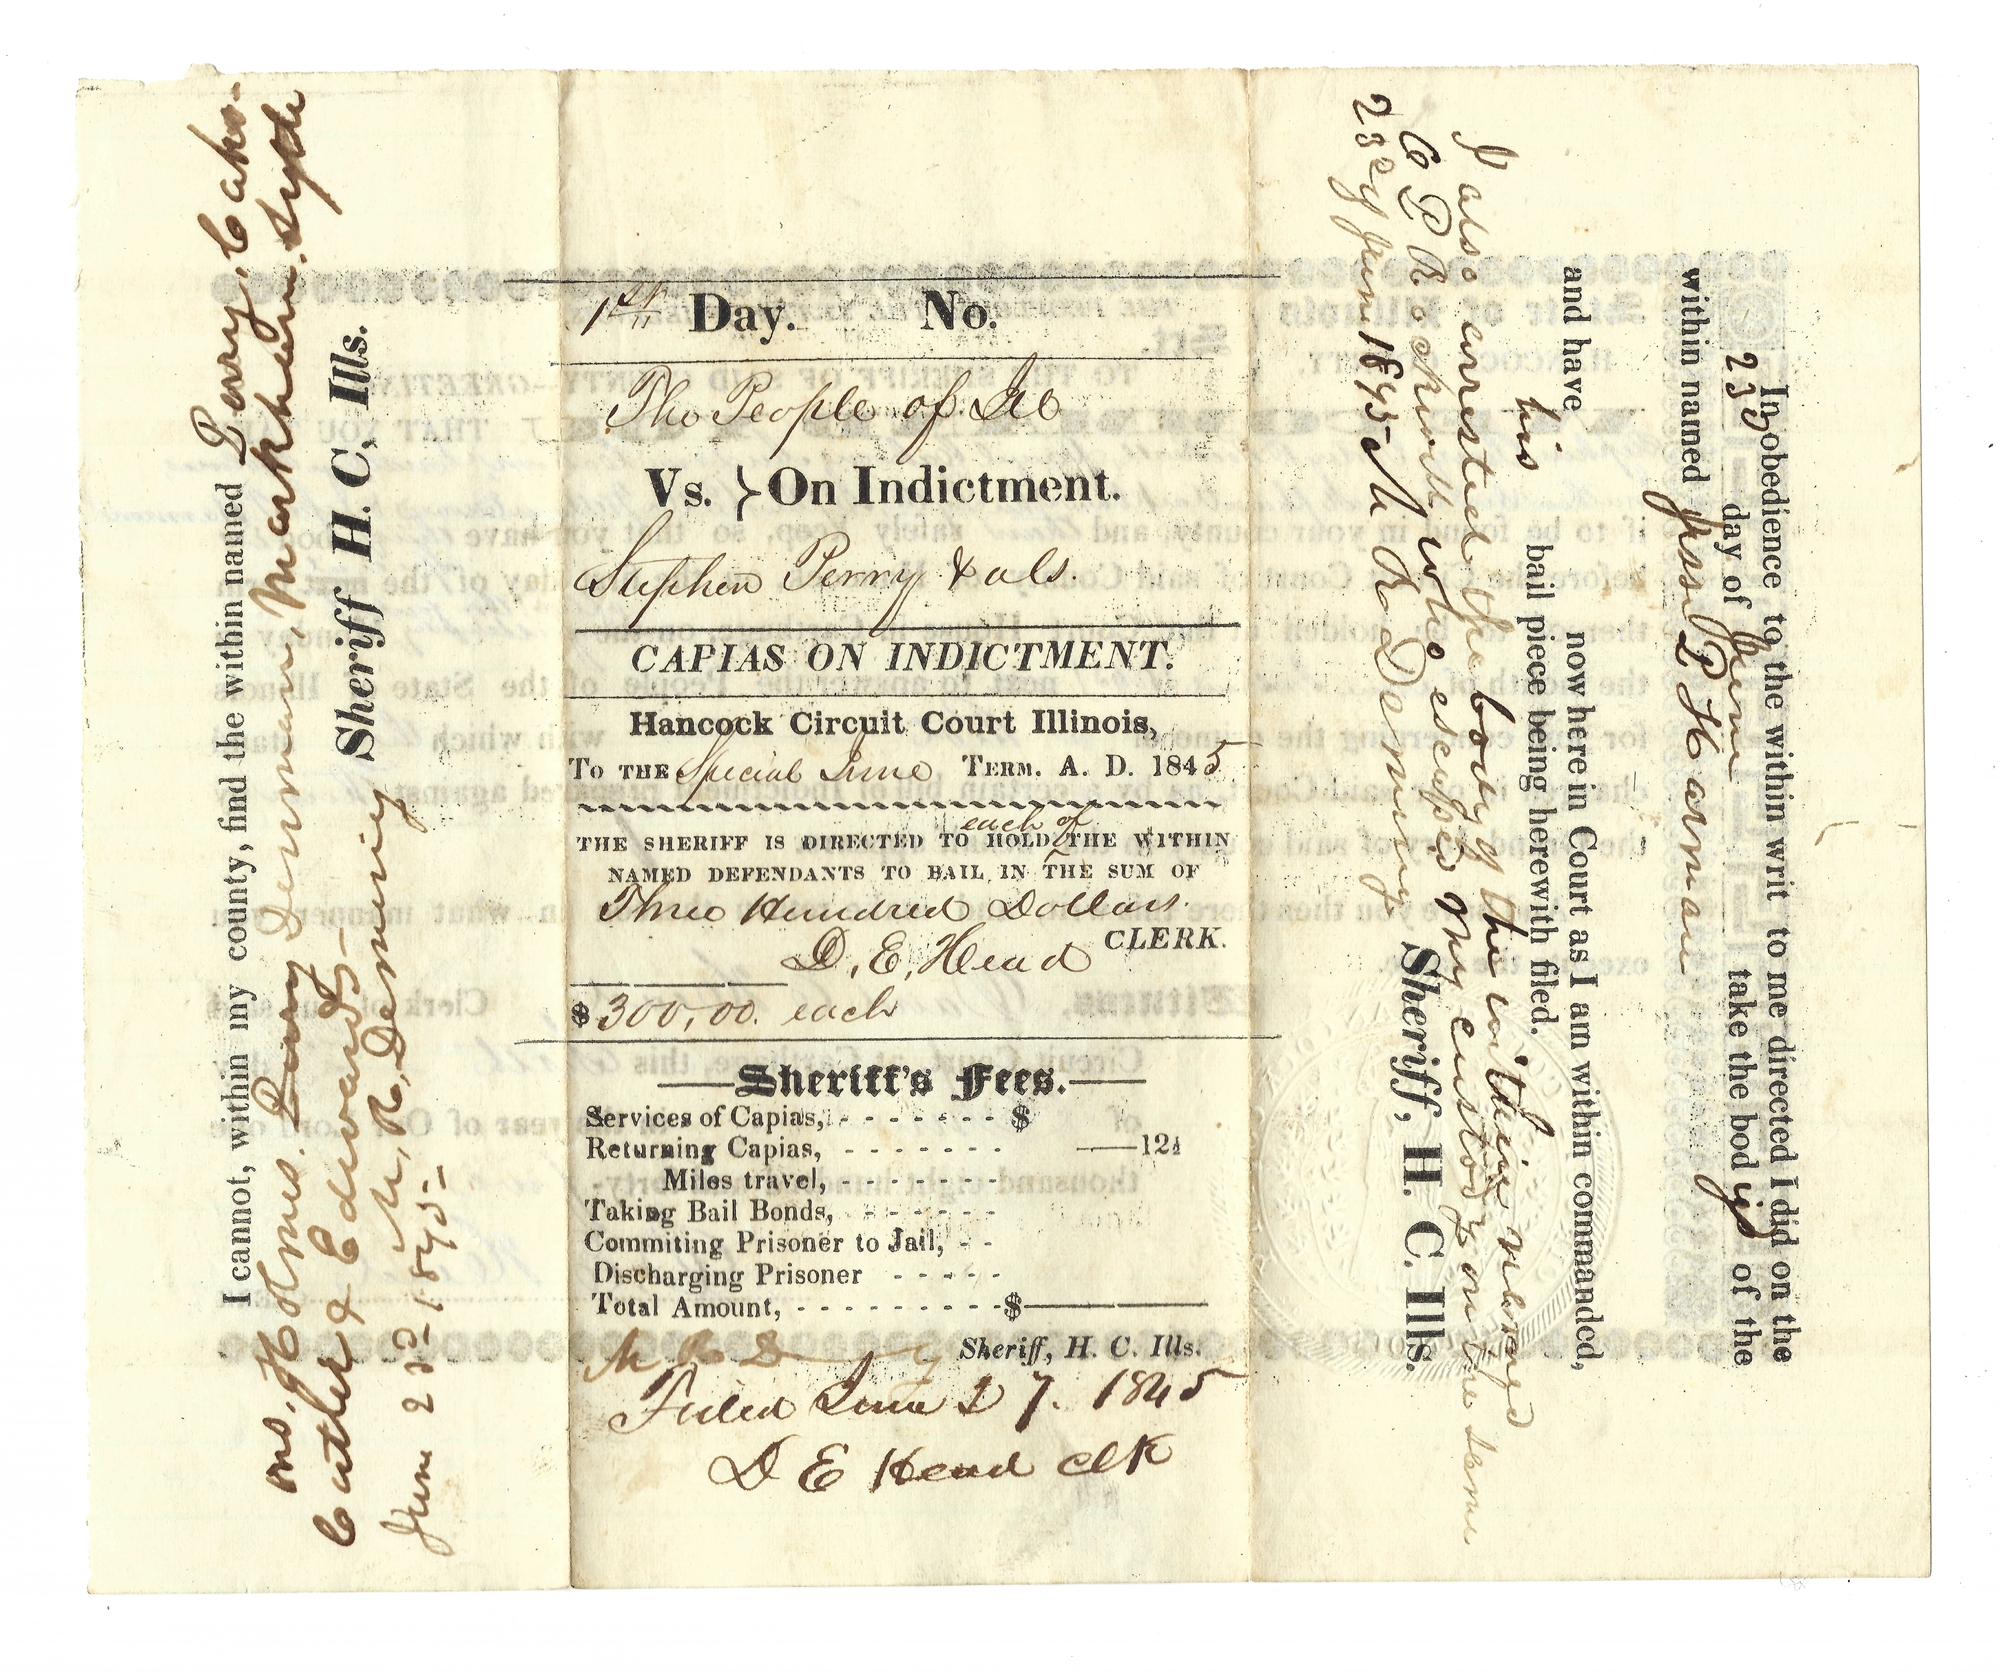 I cannot, within my county, find the within named Perry, Caho-
ons, Holmes, Perry Denman, Markham, Lytle
Cutler & Edwards—
M. R. Deming Sheriff H. C, Ills.
June 23d 1845—
1st Day. No.
The People of Ill
Vs. } On Indictment.
Stephen Perry & als.
CAPIAS ON INDICTMENT.
Hancock Circuit Court Illinois,
To the Special June Term. A. D. 1845
THE SHERIFF IS DIRECTED TO HOLD each of THE WITHIN
NAMED DEFENDANTS TO BAIL IN THE SUM OF
Three Hundred Dollars
D. E. Head CLERK.
$300,00. each
Sheriff's Fees.
Services of Capias, - - - - - - - $
Returning Capias, - - - - - - - 12½
Miles travel, - - - - - - -
Taking Bail Bonds, - - - - - -
Commiting Prisoner to Jail, - -
Discharging Prisoner - - - - -
Total Amount, - - - - - - - - - $
M R Deming Sheriff, H. C. Ills.
Filed June 27. 1845
D E Head clk
In obedience to the within writ to me directed I did on the
23d day of June take the body of the
within named Jesse P Harman
and have now here in Court as I am within commanded,
his bail piece being herewith filed.
I also arrested the body of the within named
C P Rockwell who escaped my custody on the same
23d of June 1845 M R Deming Sheriff, H. C. Ills.